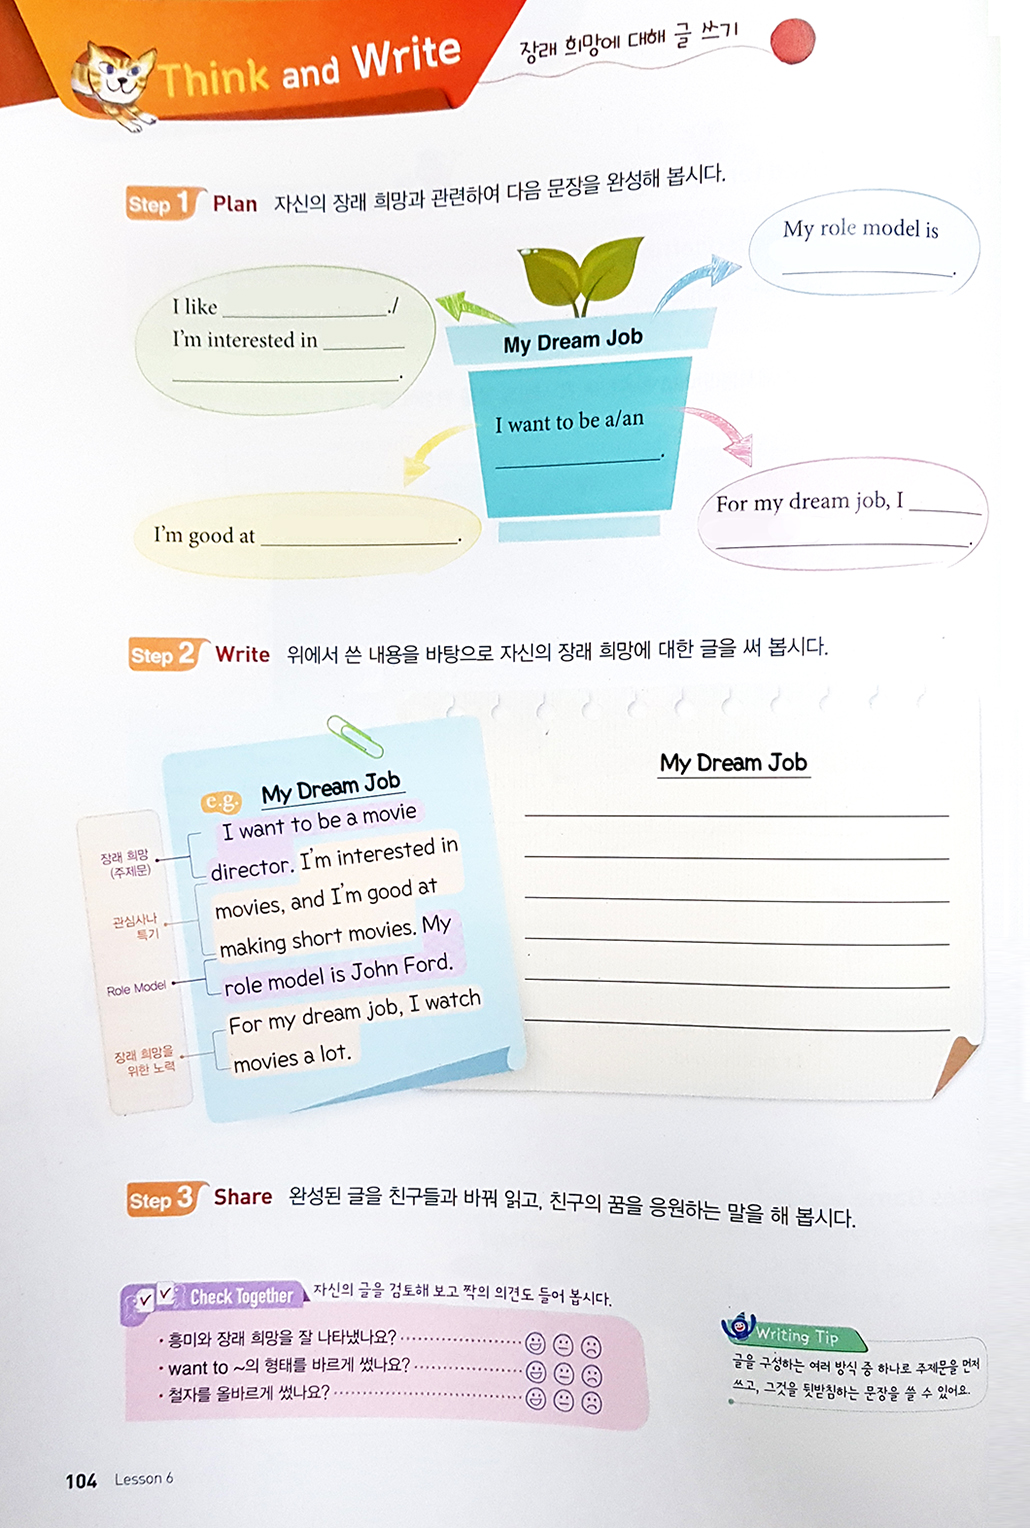 Think and Write
장래 희망에 대해 글 쓰기
Step 1 Plan 자신의 장래 희망과 관련하여 다음 문장을 완성해 봅시다.
My role model is
____________.
I like ____________./
I'm interested in ________
____________.
My Dream Job
I want to be a/an
____________.
I'm good at ____________.
For my dream job, I ________
____________.
Step 2 Write 위에서 쓴 내용을 바탕으로 자신의 장래 희망에 대한 글을 써 봅시다.
e.g. My Dream Job
I want to be a movie
director. I'm interested in
movies, and I'm good at
making short movies. My
role model is John Ford.
For my dream job, I watch
movies a lot.
장래 희망
(주제문)
관심사나
특기
Role Model
장래 희망을
위한 노력
My Dream Job
Step 3 Share 완성된 글을 친구들과 바꿔 읽고, 친구의 꿈을 응원하는 말을 해 봅시다.
Check Together 자신의 글을 검토해 보고 짝의 의견도 들어 봅시다.
• 흥미와 장래 희망을 잘 나타냈나요?
• want to ~의 형태를 바르게 썼나요?
• 철자를 올바르게 썼나요?
Writing Tip
글을 구성하는 여러 방식 중 하나로 주제문을 먼저
쓰고, 그것을 뒷받침하는 문장을 쓸 수 있어요.
104 Lesson 6